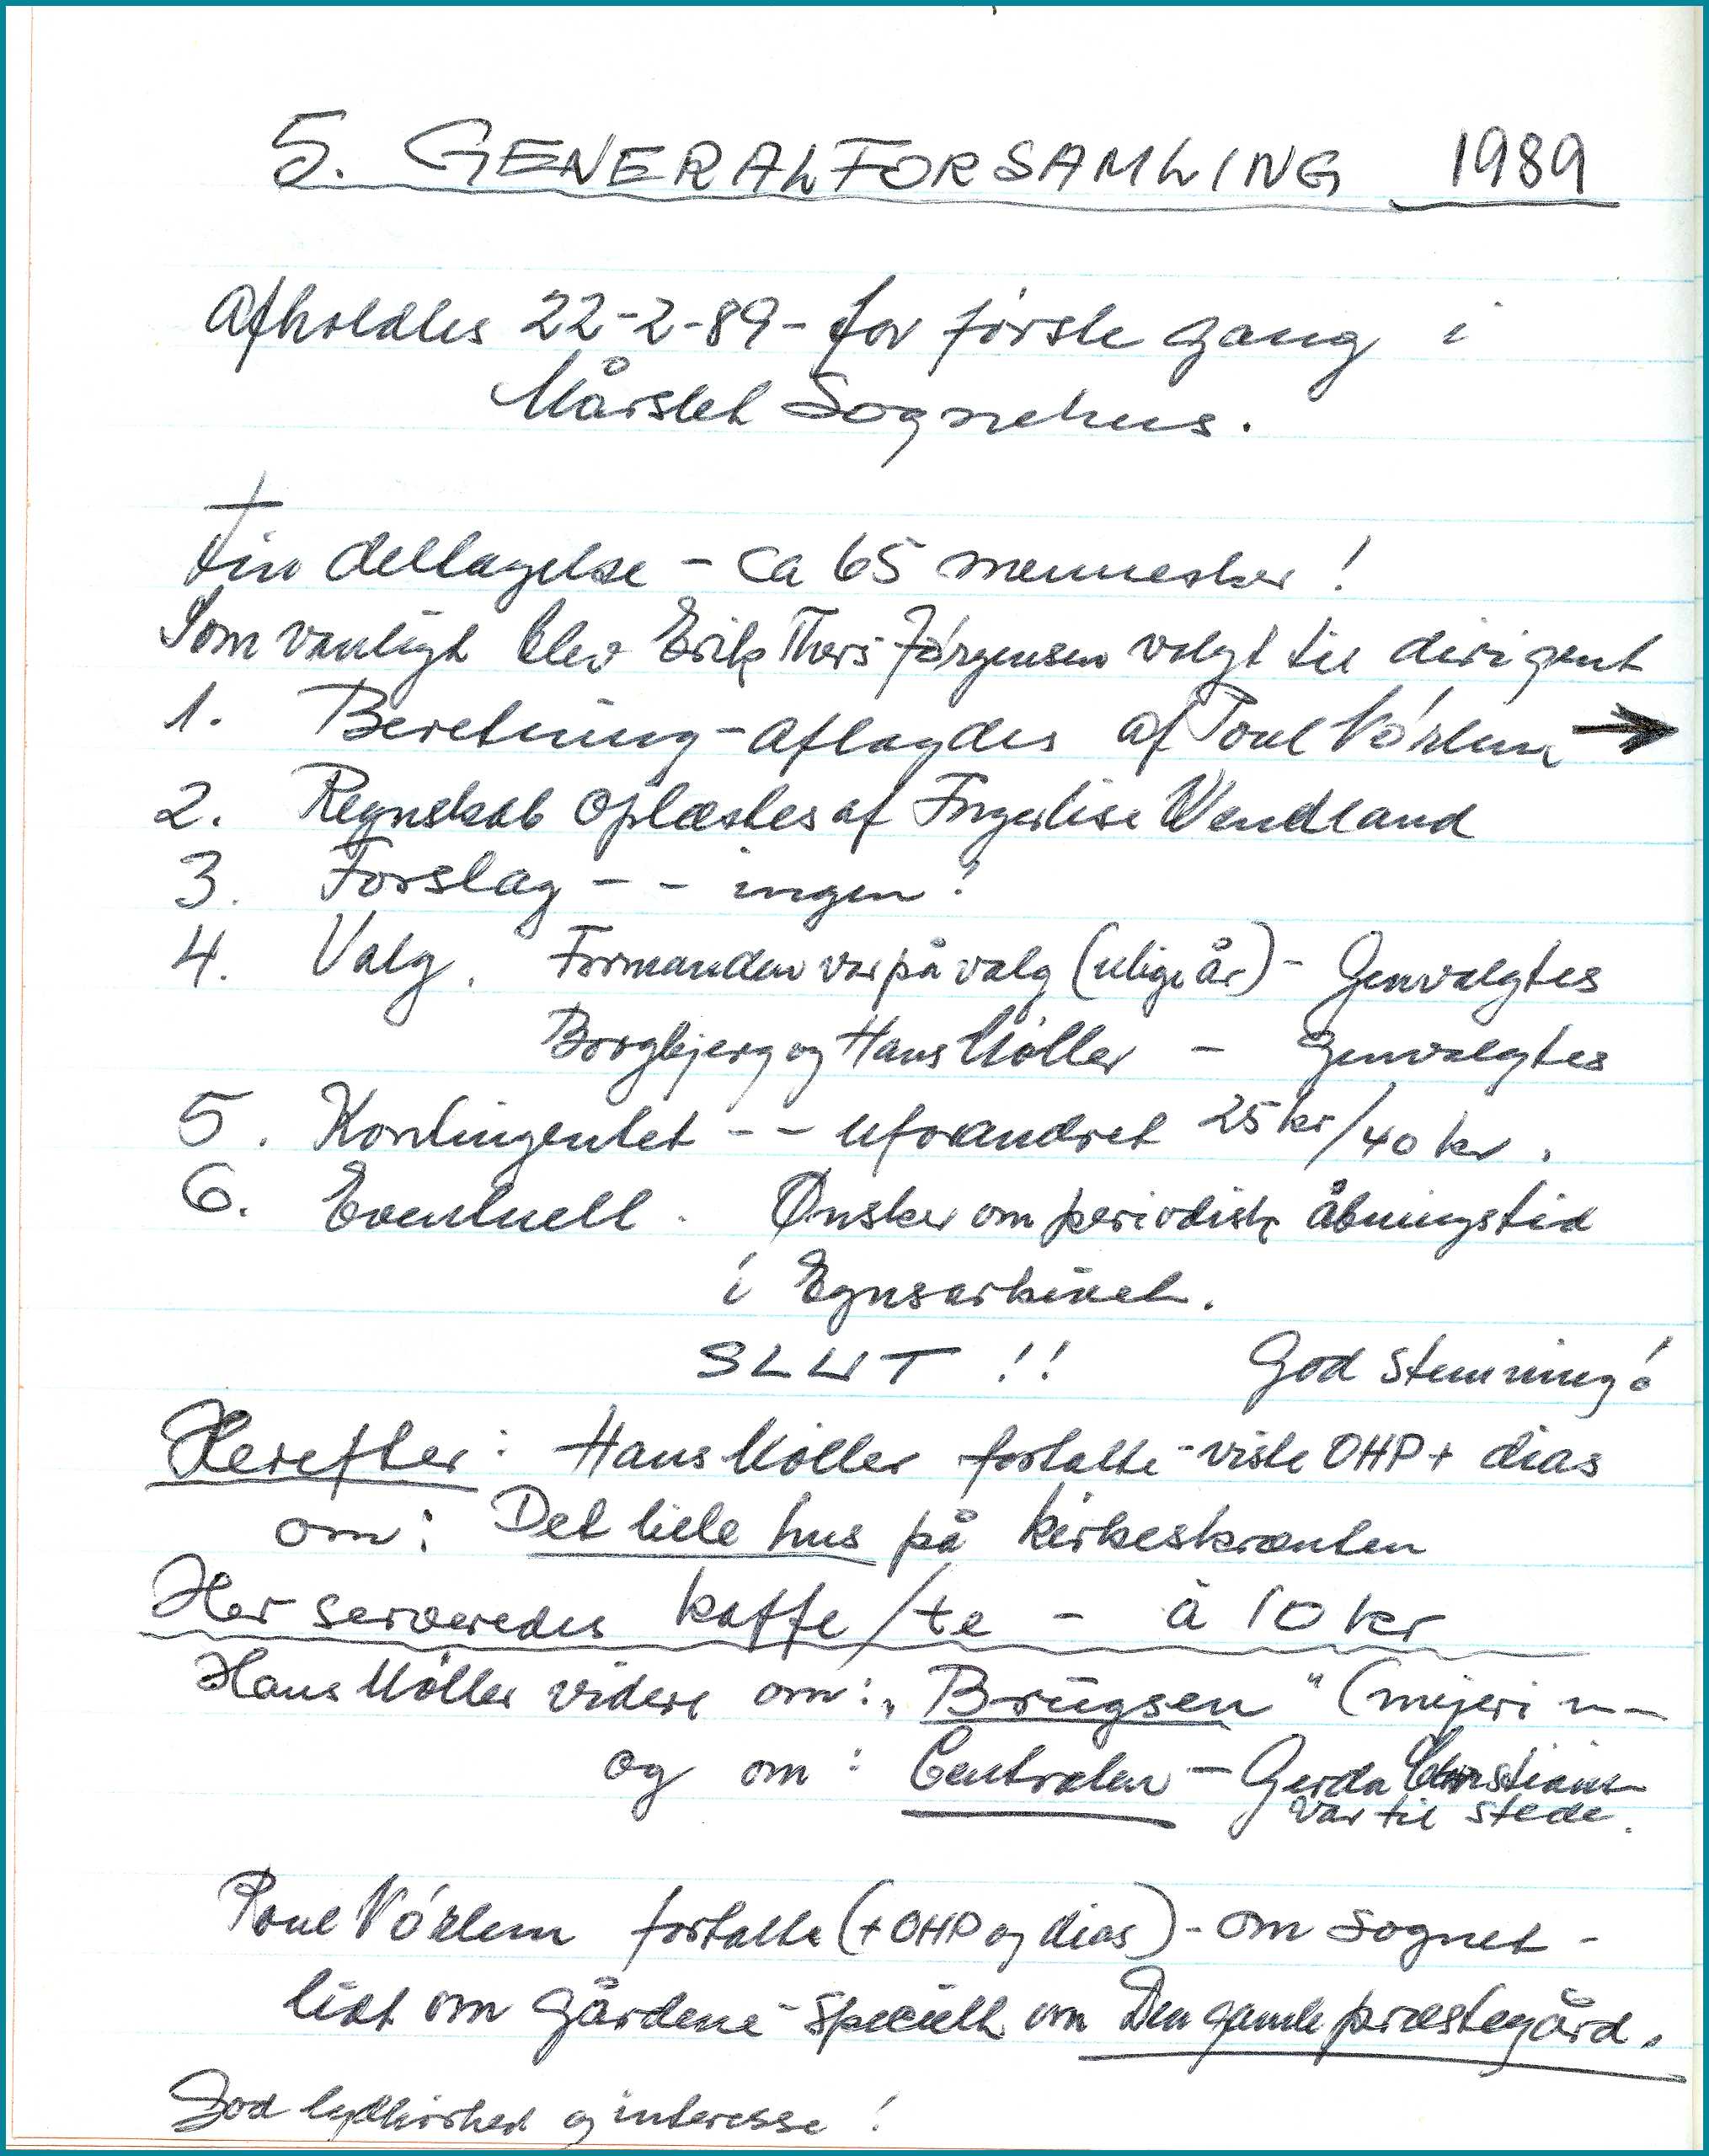 5. GENERALFORSAMLING 1989
Afholdtes 22-2-89 - for første gang i
Mårslet Sognehus.
Fin deltagelse - ca 65 mennesker!
Som vanligt blev Erik Thors Jørgensen valgt til dirigent
1. Beretning - aflagdes af Poul →
2. Regnskab oplæstes af Ingerlise Wendland
3. Forslag - - ingen!
4. Valg. Formanden var på valg (ulige år) - Genvalgtes
Borgbjerg og Hans Møller - Genvalgtes
5. Kontingentet - - uforandret 25 kr/40 kr.
6. Eventuelt. Ønsker om periodisk åbningstid
i Egnsarkivet.
SLUT !! God stemning!
Herefter: Hans Møller fortalte - viste OHP + dias
om: Det lille hus på kirkeskrænten
Her serveredes kaffe/te - á 10 kr
Hans Møller videre om: "Brugsen" (mejeri
og om: Centralen - Gerda
var til stede.
Poul fortalte (+ OHP og dias) - om sognet -
lidt om gårdene - specielt om Den gamle præstegård.
God lydhørhed og interesse!